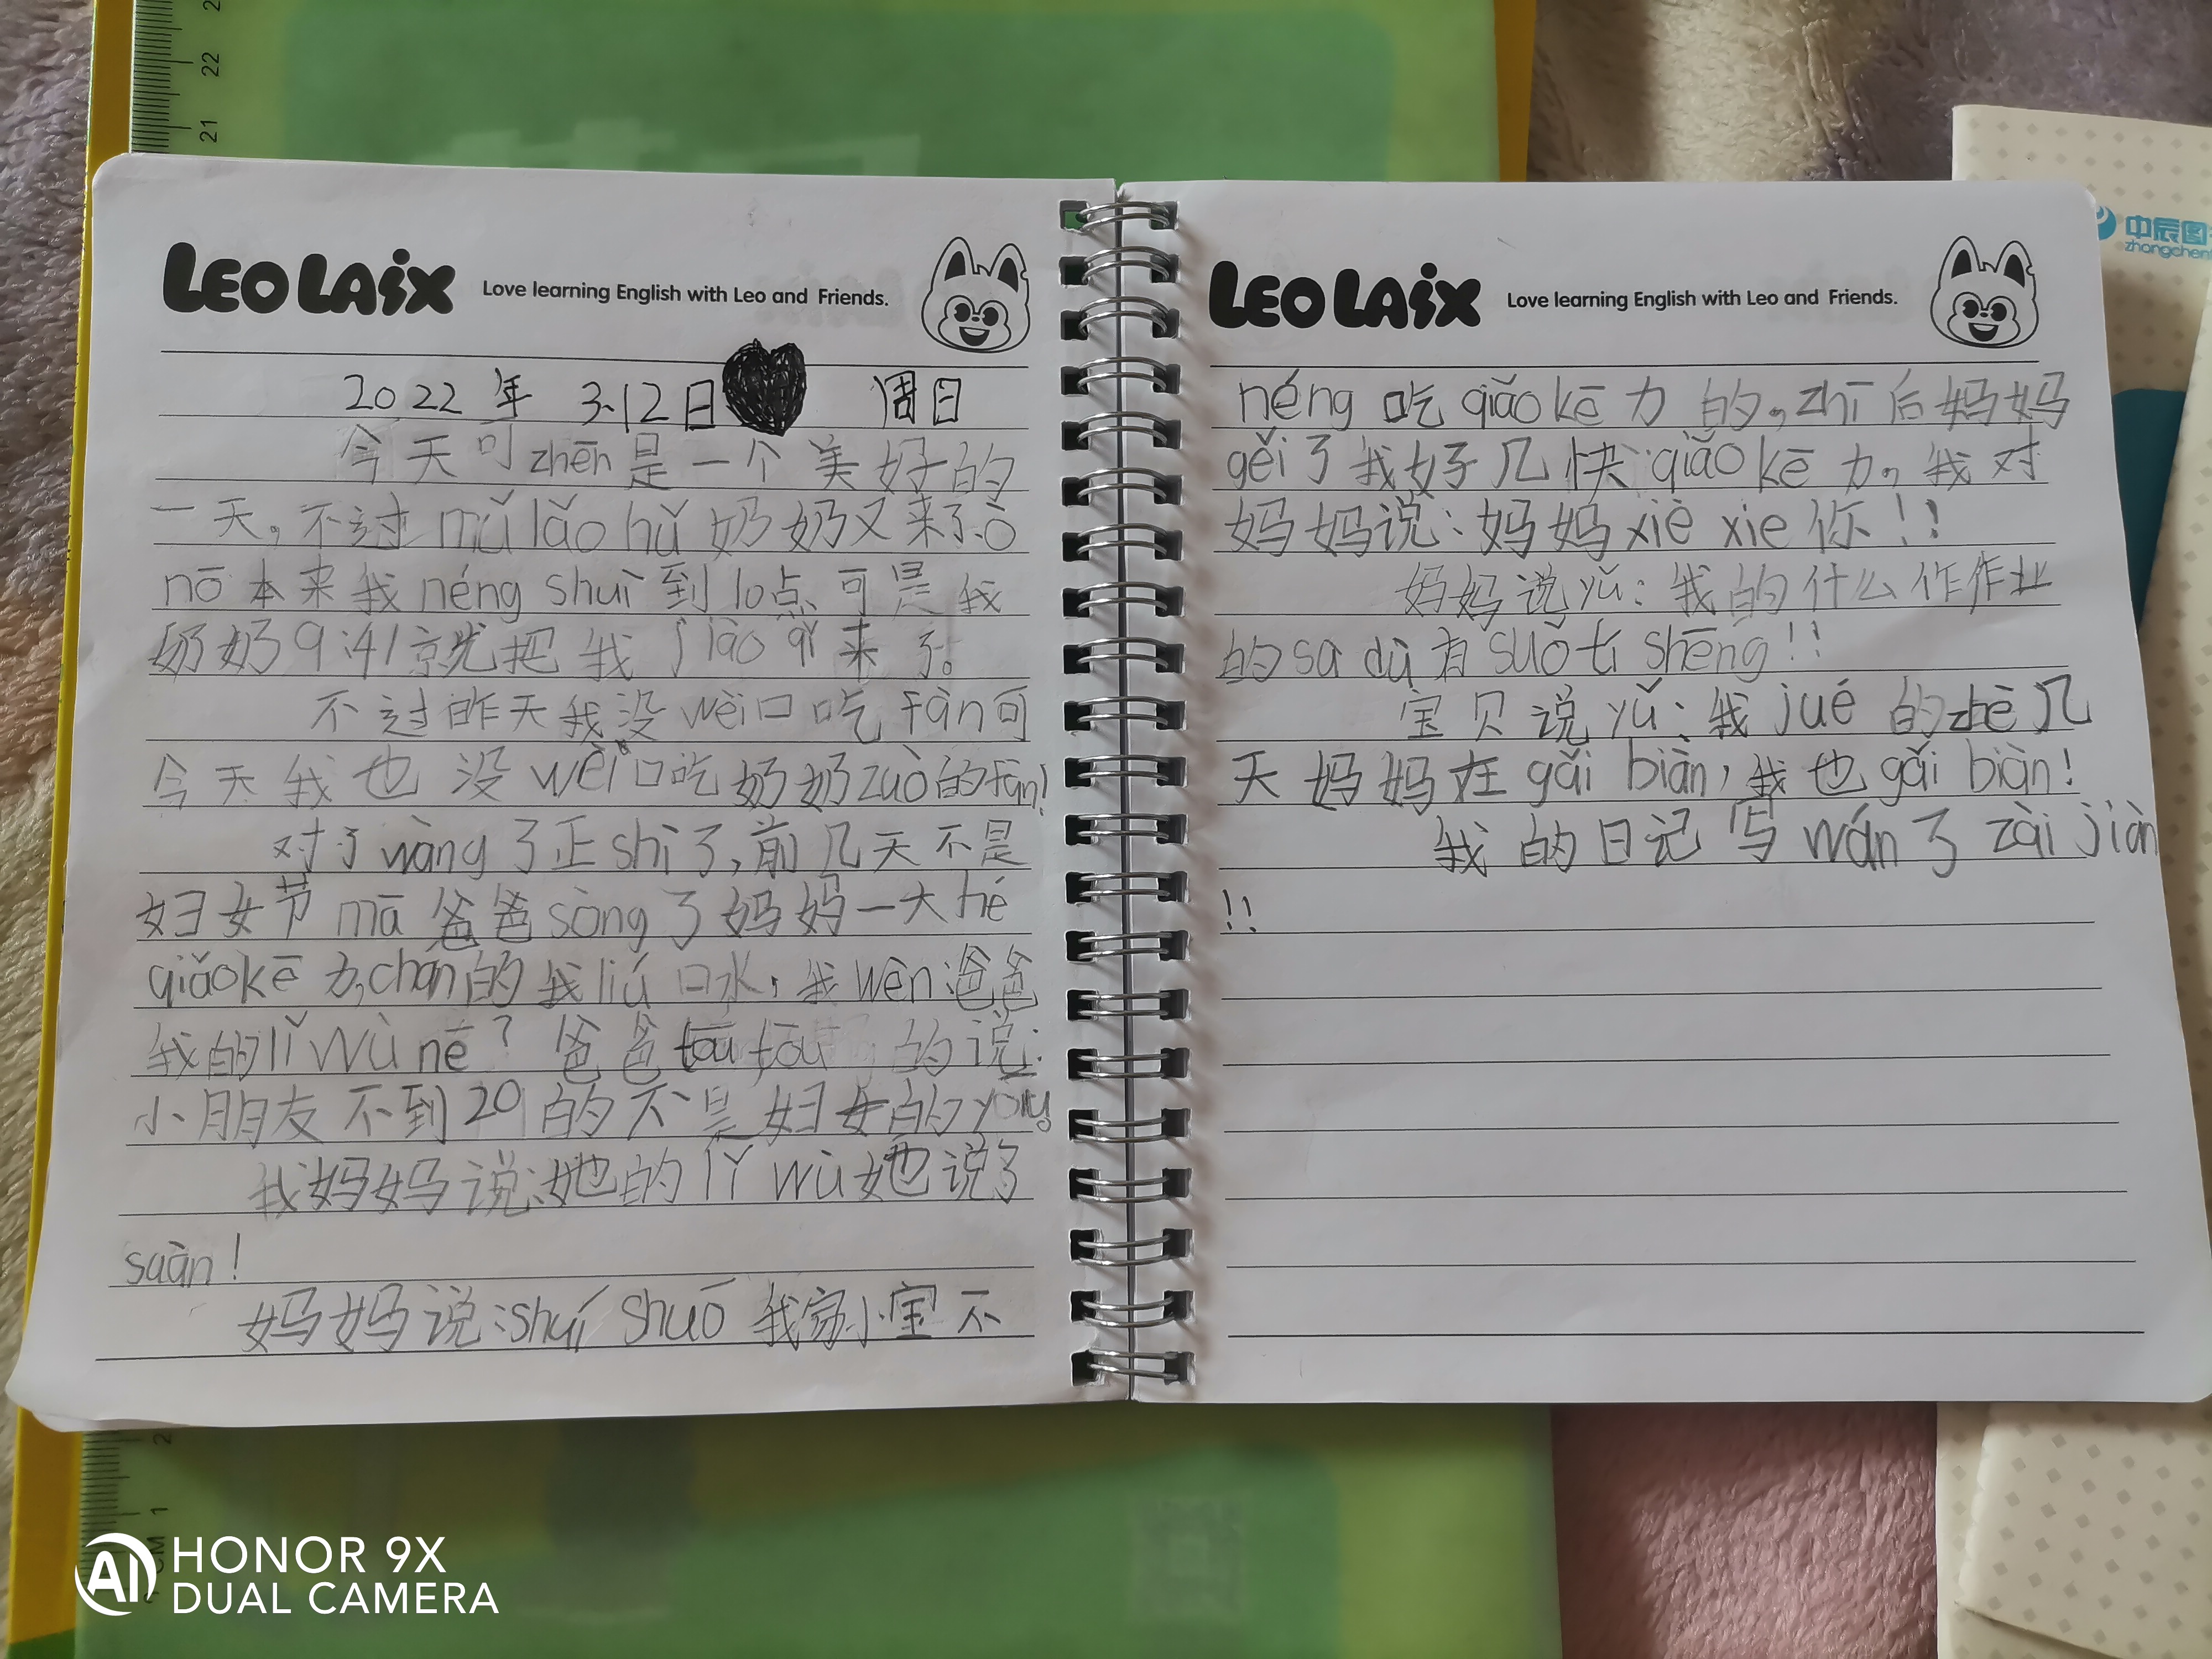 22
21
LEO LAIX Love learning English with Leo and Friends.
2022 年 3.12日 周日
今天可zhēn是一个美好的
一天。不过mǔ lǎo hǔ奶奶又来了。ò
nō本来我néng shuì到10点、可是我
奶奶9:41就把我jiào qǐ来了。
不过昨天我没wèi口吃fàn可
今天我也没wèi口吃奶奶zuò的fàn!
对了wàng了正shì了,前几天不是
妇女节mā爸爸sòng了妈妈一大hé
qiǎokē力,chán的我liú口水,我wèn爸爸
我的lǐ wù nē? 爸爸tōu tōu的说:
小朋友不到20的不是妇女的yòng
我妈妈说:她的lǐ wù她说了
suàn!
妈妈说:shuí shuō我家小宝不
LEO LAIX Love learning English with Leo and Friends.
néng吃qiǎo kē力的。zhī后妈妈
gěi了我好几快qiǎo kē力。我对
妈妈说:妈妈xiè xie你!!
妈妈说yǔ:我的什么作作业
的sa dù有suǒ tí shēng!!
宝贝说yǔ:我jué的zhè几
天妈妈在gǎi biàn,我也gǎi biàn!
我的日记写wán了zài jiàn
!!
中辰图
zhongchen
AI HONOR 9X
DUAL CAMERA